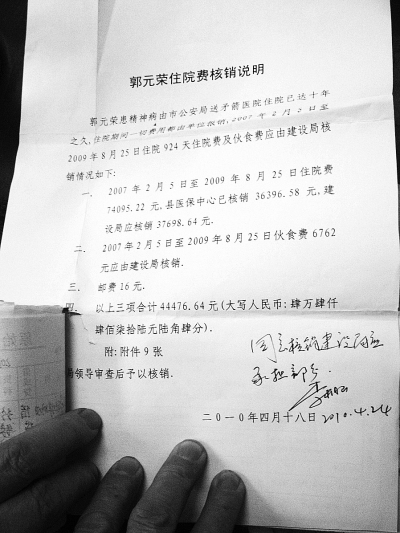 郭元荣住院费核销说明
郭元荣患精神病由市公安局送茅箭医院住院已达十年
之久,住院期间一切费用都由单位报销,2007年2月5日至
2009年8月25日住院924天住院费及伙食费应由建设局核
销情况如下:
一、 2007年2月5日至2009年8月25日住院费
74095.22元,县医保中心已核销36396.58元,建
设局应核销37698.64元.
二、 2007年2月5日至2009年8月25日伙食费6762
元应由建设局核销.
三、 邮费16元.
四、 以上三项合计44476.64元(大写人民币:肆万肆仟
肆佰柒拾陆元陆角肆分).
附:附件9张
局领导审查后予以核销.
同意核销建设局应
承担部分
二〇一〇年四月十八日 2010.4.24